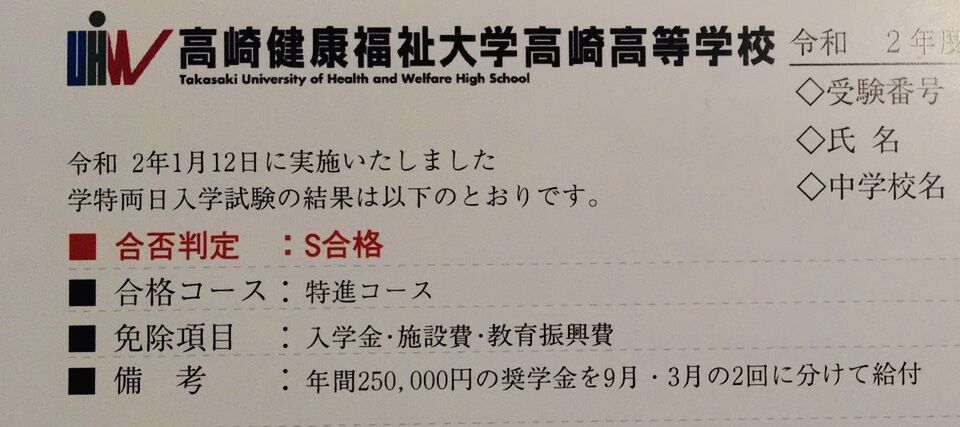 UHW 高崎健康福祉大学高崎高等学校
Takasaki University of Health and Welfare High School
令和 2年度
◇受験番号
◇氏 名
◇中学校名
令和 2年1月12日に実施いたしました
学特両日入学試験の結果は以下のとおりです。
■ 合否判定 :S合格
■ 合格コース:特進コース
■ 免除項目 :入学金・施設費・教育振興費
■ 備 考 :年間250,000円の奨学金を9月・3月の2回に分けて給付